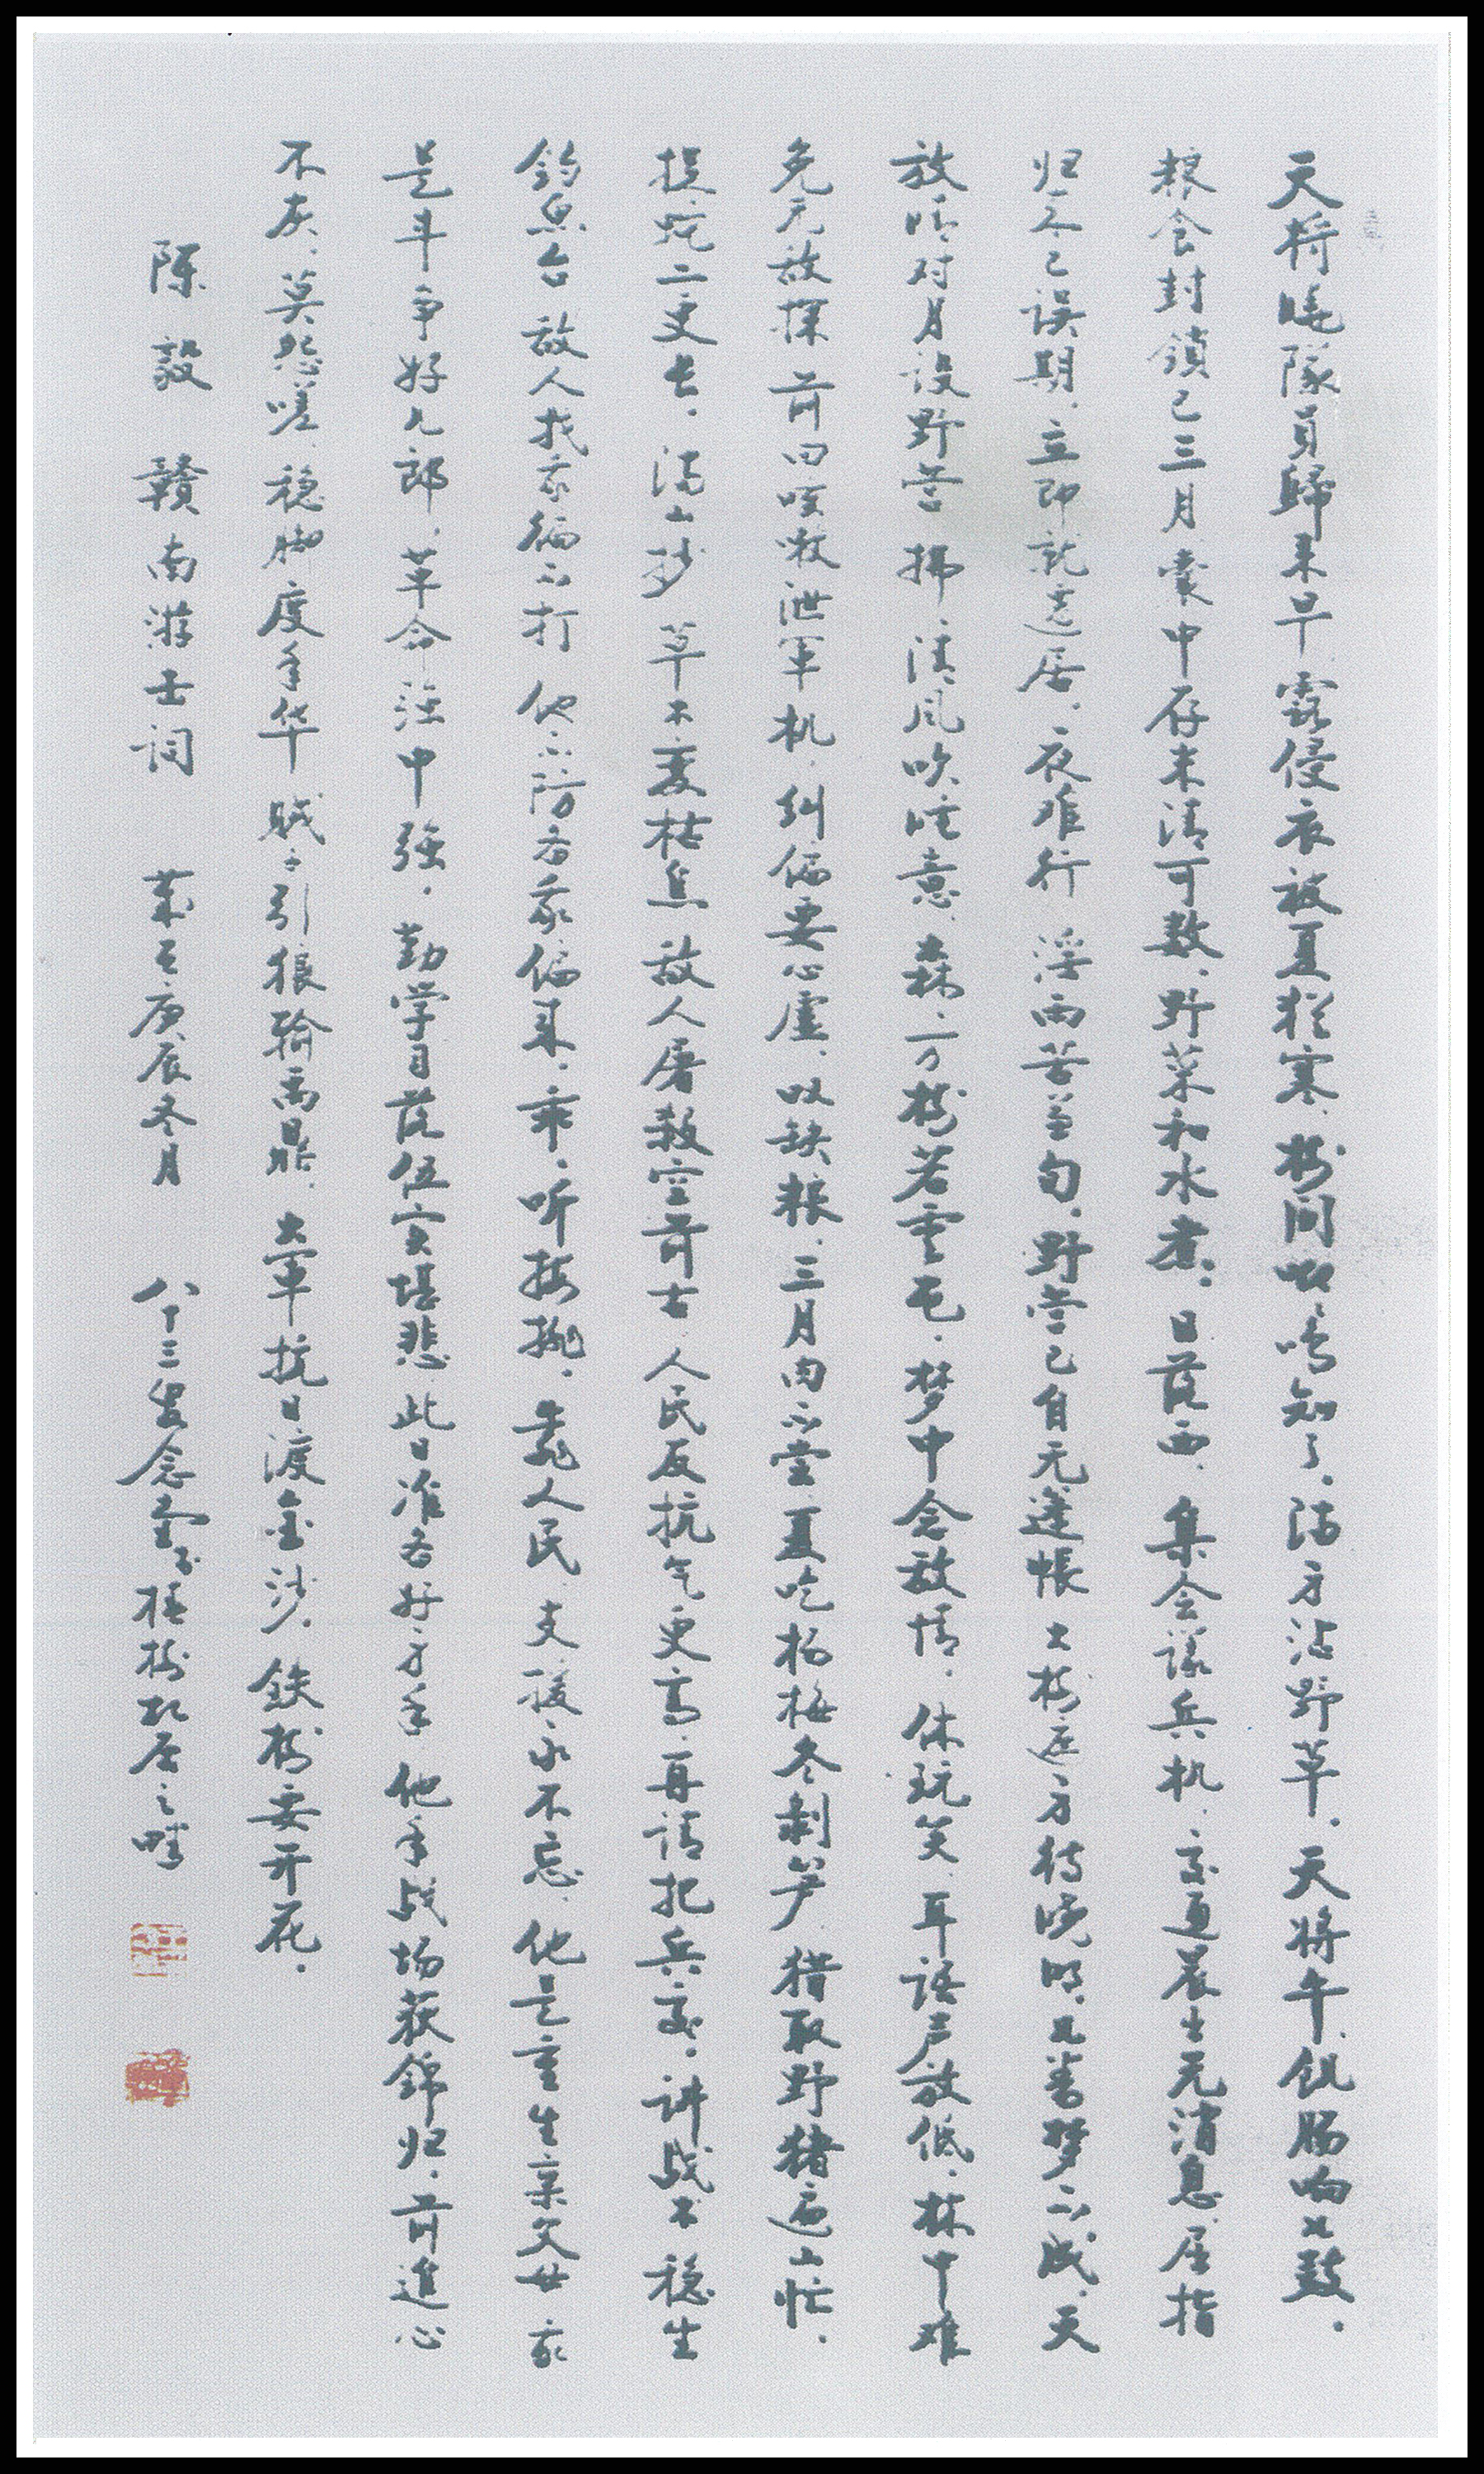 天将曉隊員歸来早露侵衣被夏犹寒樹间唧唧鸣知了满身沾野草天将午饥肠响如鼓
粮食封鎖已三月囊中存米清可数野菜和水煮日落西集会議兵机交通晨出无消息屈指
归来已误期立即就遷居夜难行淫雨苦兼旬野营已自无蓬帐大树遮身待晓明几番梦不成天
放晴对月设野营拂拂清风吹睡意森森万树若云屯梦中念敌情休玩笑耳语声放低林中难
免无敌探前回咳嗽泄军机纠偏要心虚叹缺粮三月肉不尝夏吃杨梅冬剥笋猎取野猪遍山忙
捉蛇二更长满山抄草木变枯焦敌人屠杀空前古人民反抗气更高再请把兵交讲战术稳坐
钓鱼台敌人找我偏不打他不防备我偏来乖乖听按排靠人民支援永不忘他是重生亲父母我
是斗争好儿郎革命强中强勤学习落伍实堪悲此日准备好身手他年战场获錦归前進心
不灰莫怨嗟稳脚度年华贼子引狼输禹鼎大軍抗日渡金沙鉄树要开花
陈毅 赣南游击词 庚辰冬月 八十三叟念